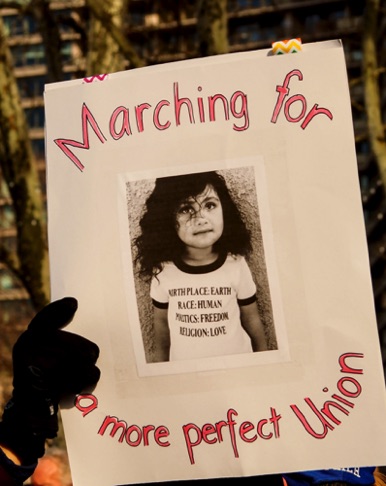 Marching for
BIRTH PLACE: EARTH
RACE: HUMAN
POLITICS: FREEDOM
RELIGION: LOVE
a more perfect Union